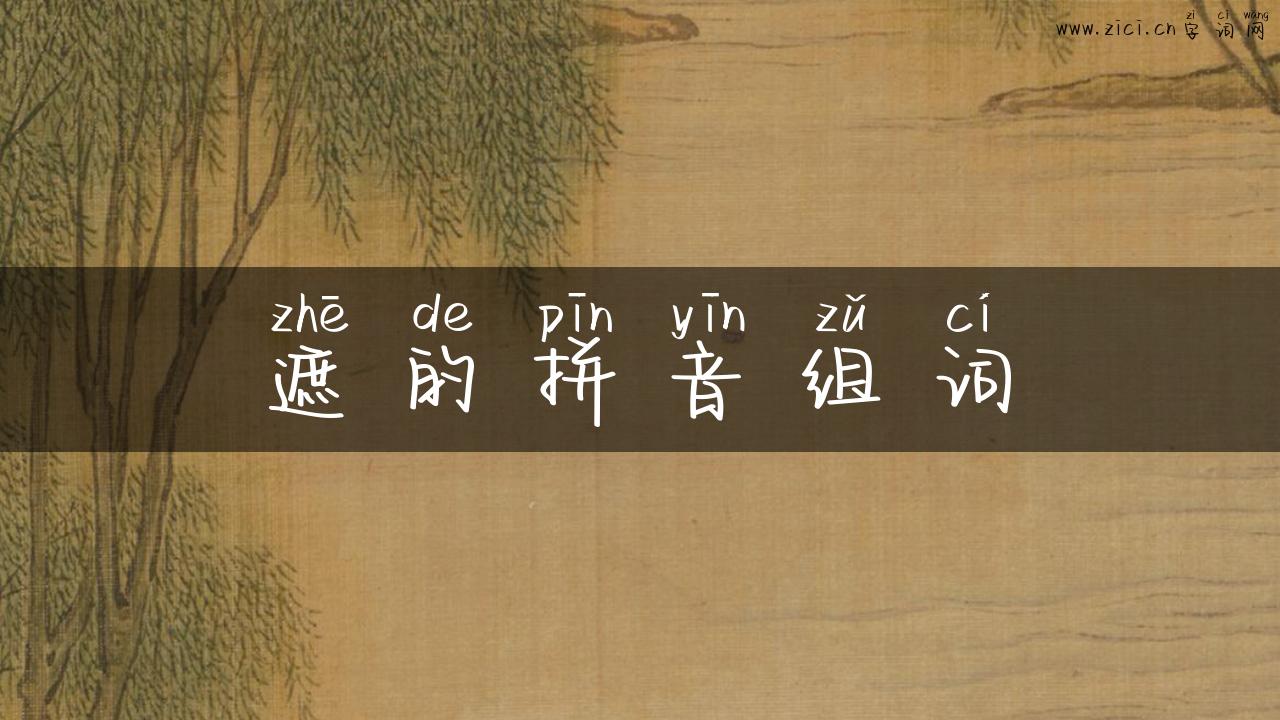 zì cí wǎng
www.zici.cn 字词网
zhē de pīn yīn zǔ cí
遮的拼音组词